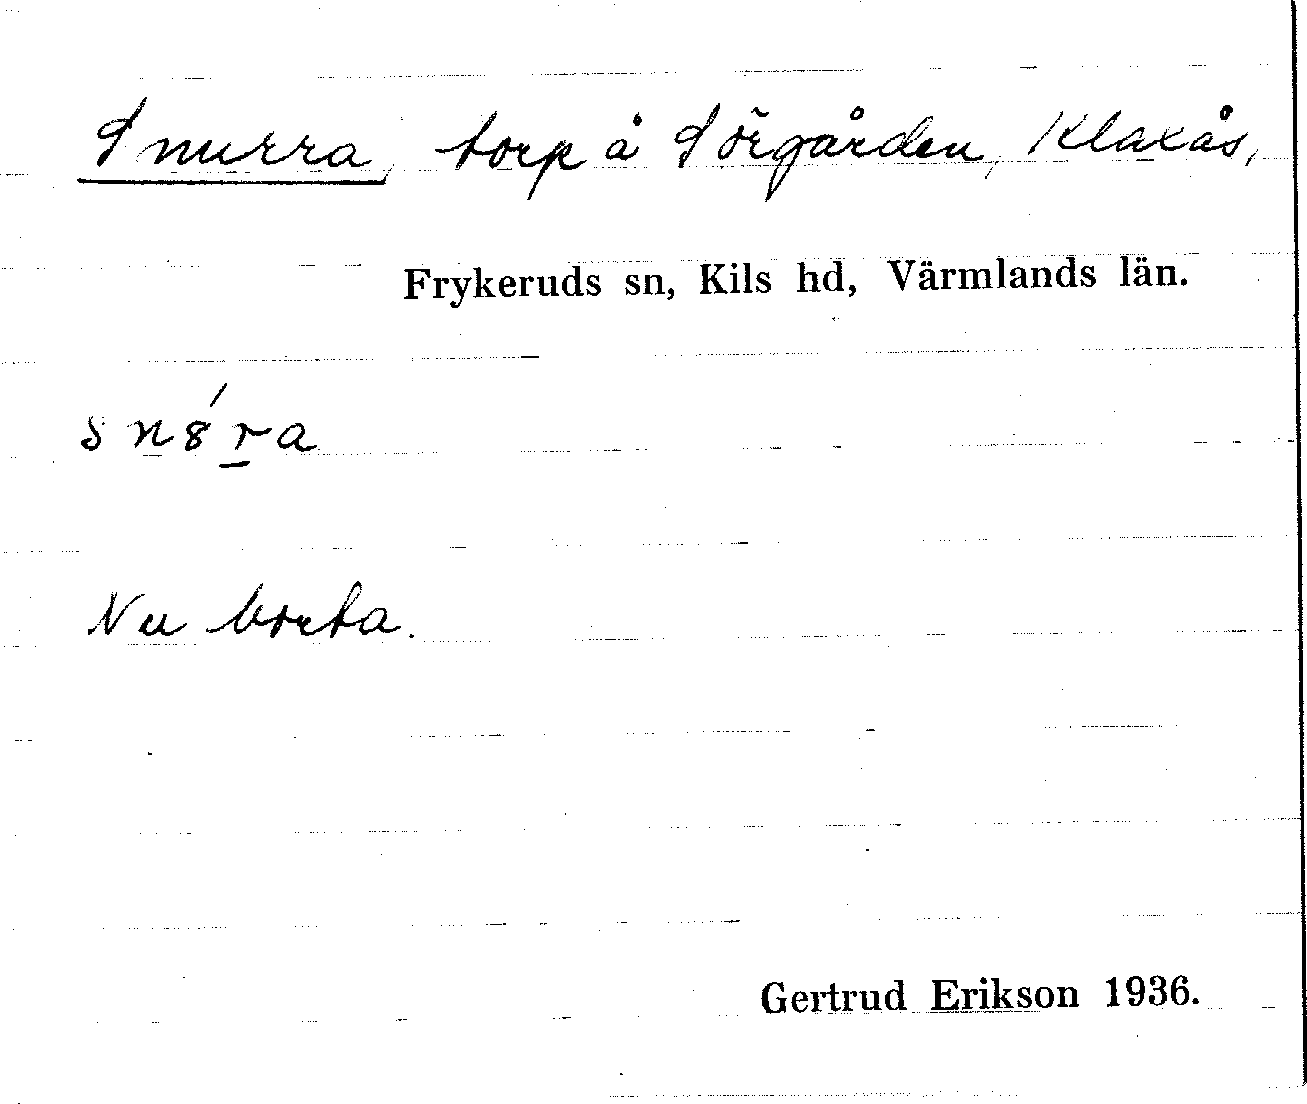 Snurra, torp å Sörgården, Klaxås,
Frykeruds sn, Kils hd, Värmlands län.
sn8́r̲a
Nu borta.
Gertrud Erikson 1936.